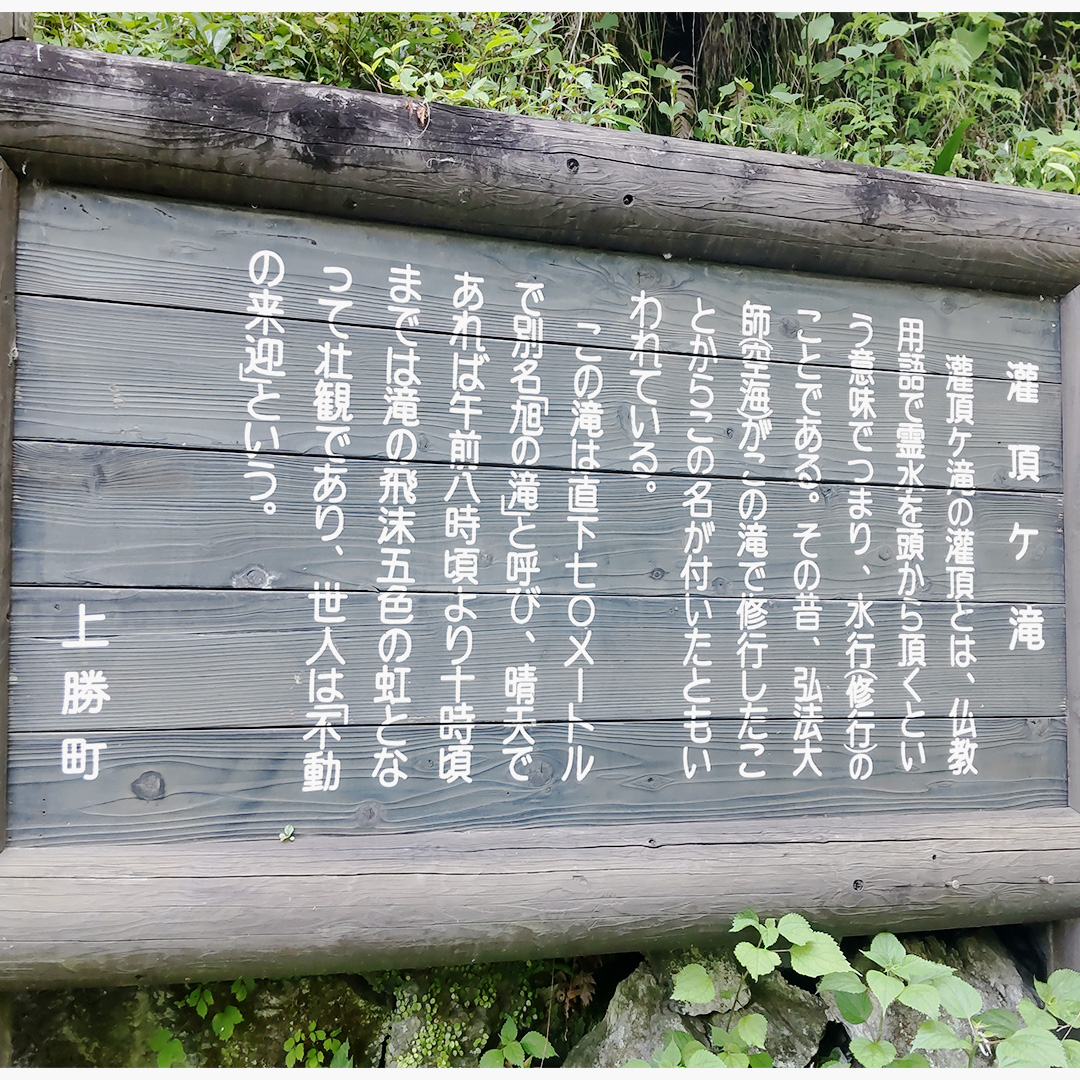 灌頂ケ滝
灌頂ケ滝の灌頂とは、仏教
用語で霊水を頭から頂くとい
う意味でつまり、水行(修行)の
ことである。その昔、弘法大
師(空海)がこの滝で修行したこ
とからこの名が付いたともい
われている。
この滝は直下七〇メートル
で別名「旭の滝」と呼び、晴天で
あれば午前八時頃より十時頃
までは滝の飛沫五色の虹とな
って壮観であり、世人は「不動
の来迎」という。
上勝町